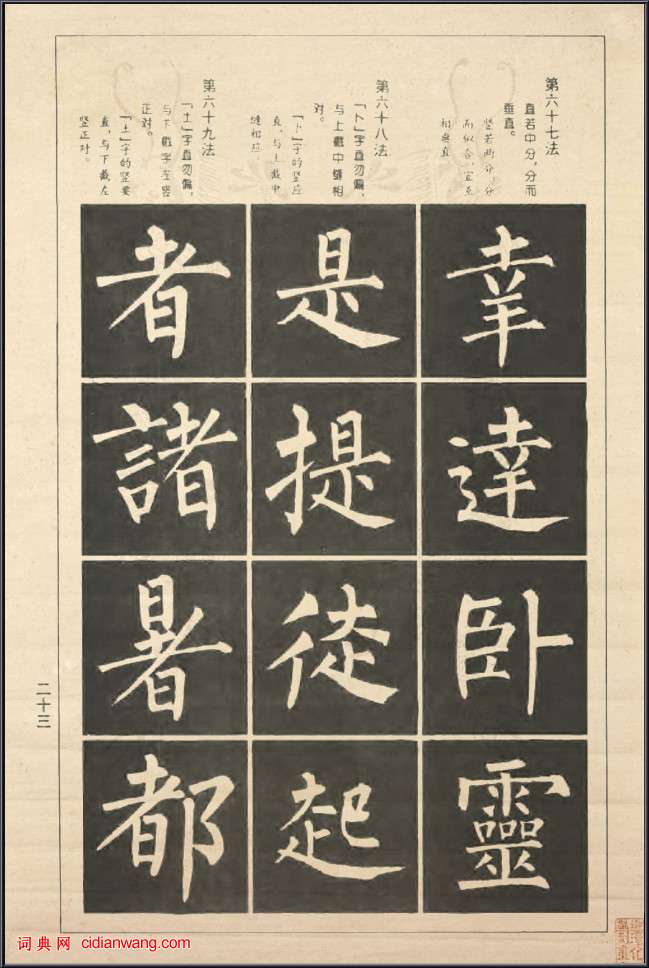 第六十七法
直若中分，分而
垂直。
竖若两分，分
而似合，宜互
相垂直
第六十八法
「卜」字直勿偏，
与上截中缝相
对。
「卜」字的竖应
直，与上截中
缝相应
第六十九法
「土」字直勿偏，
与下截字左竖
正对。
「土」字的竖要
直，与下截左
竖正对。
幸達卧靈
是提徒起
者諸暑都
二十三
词典网 cidianwang.com